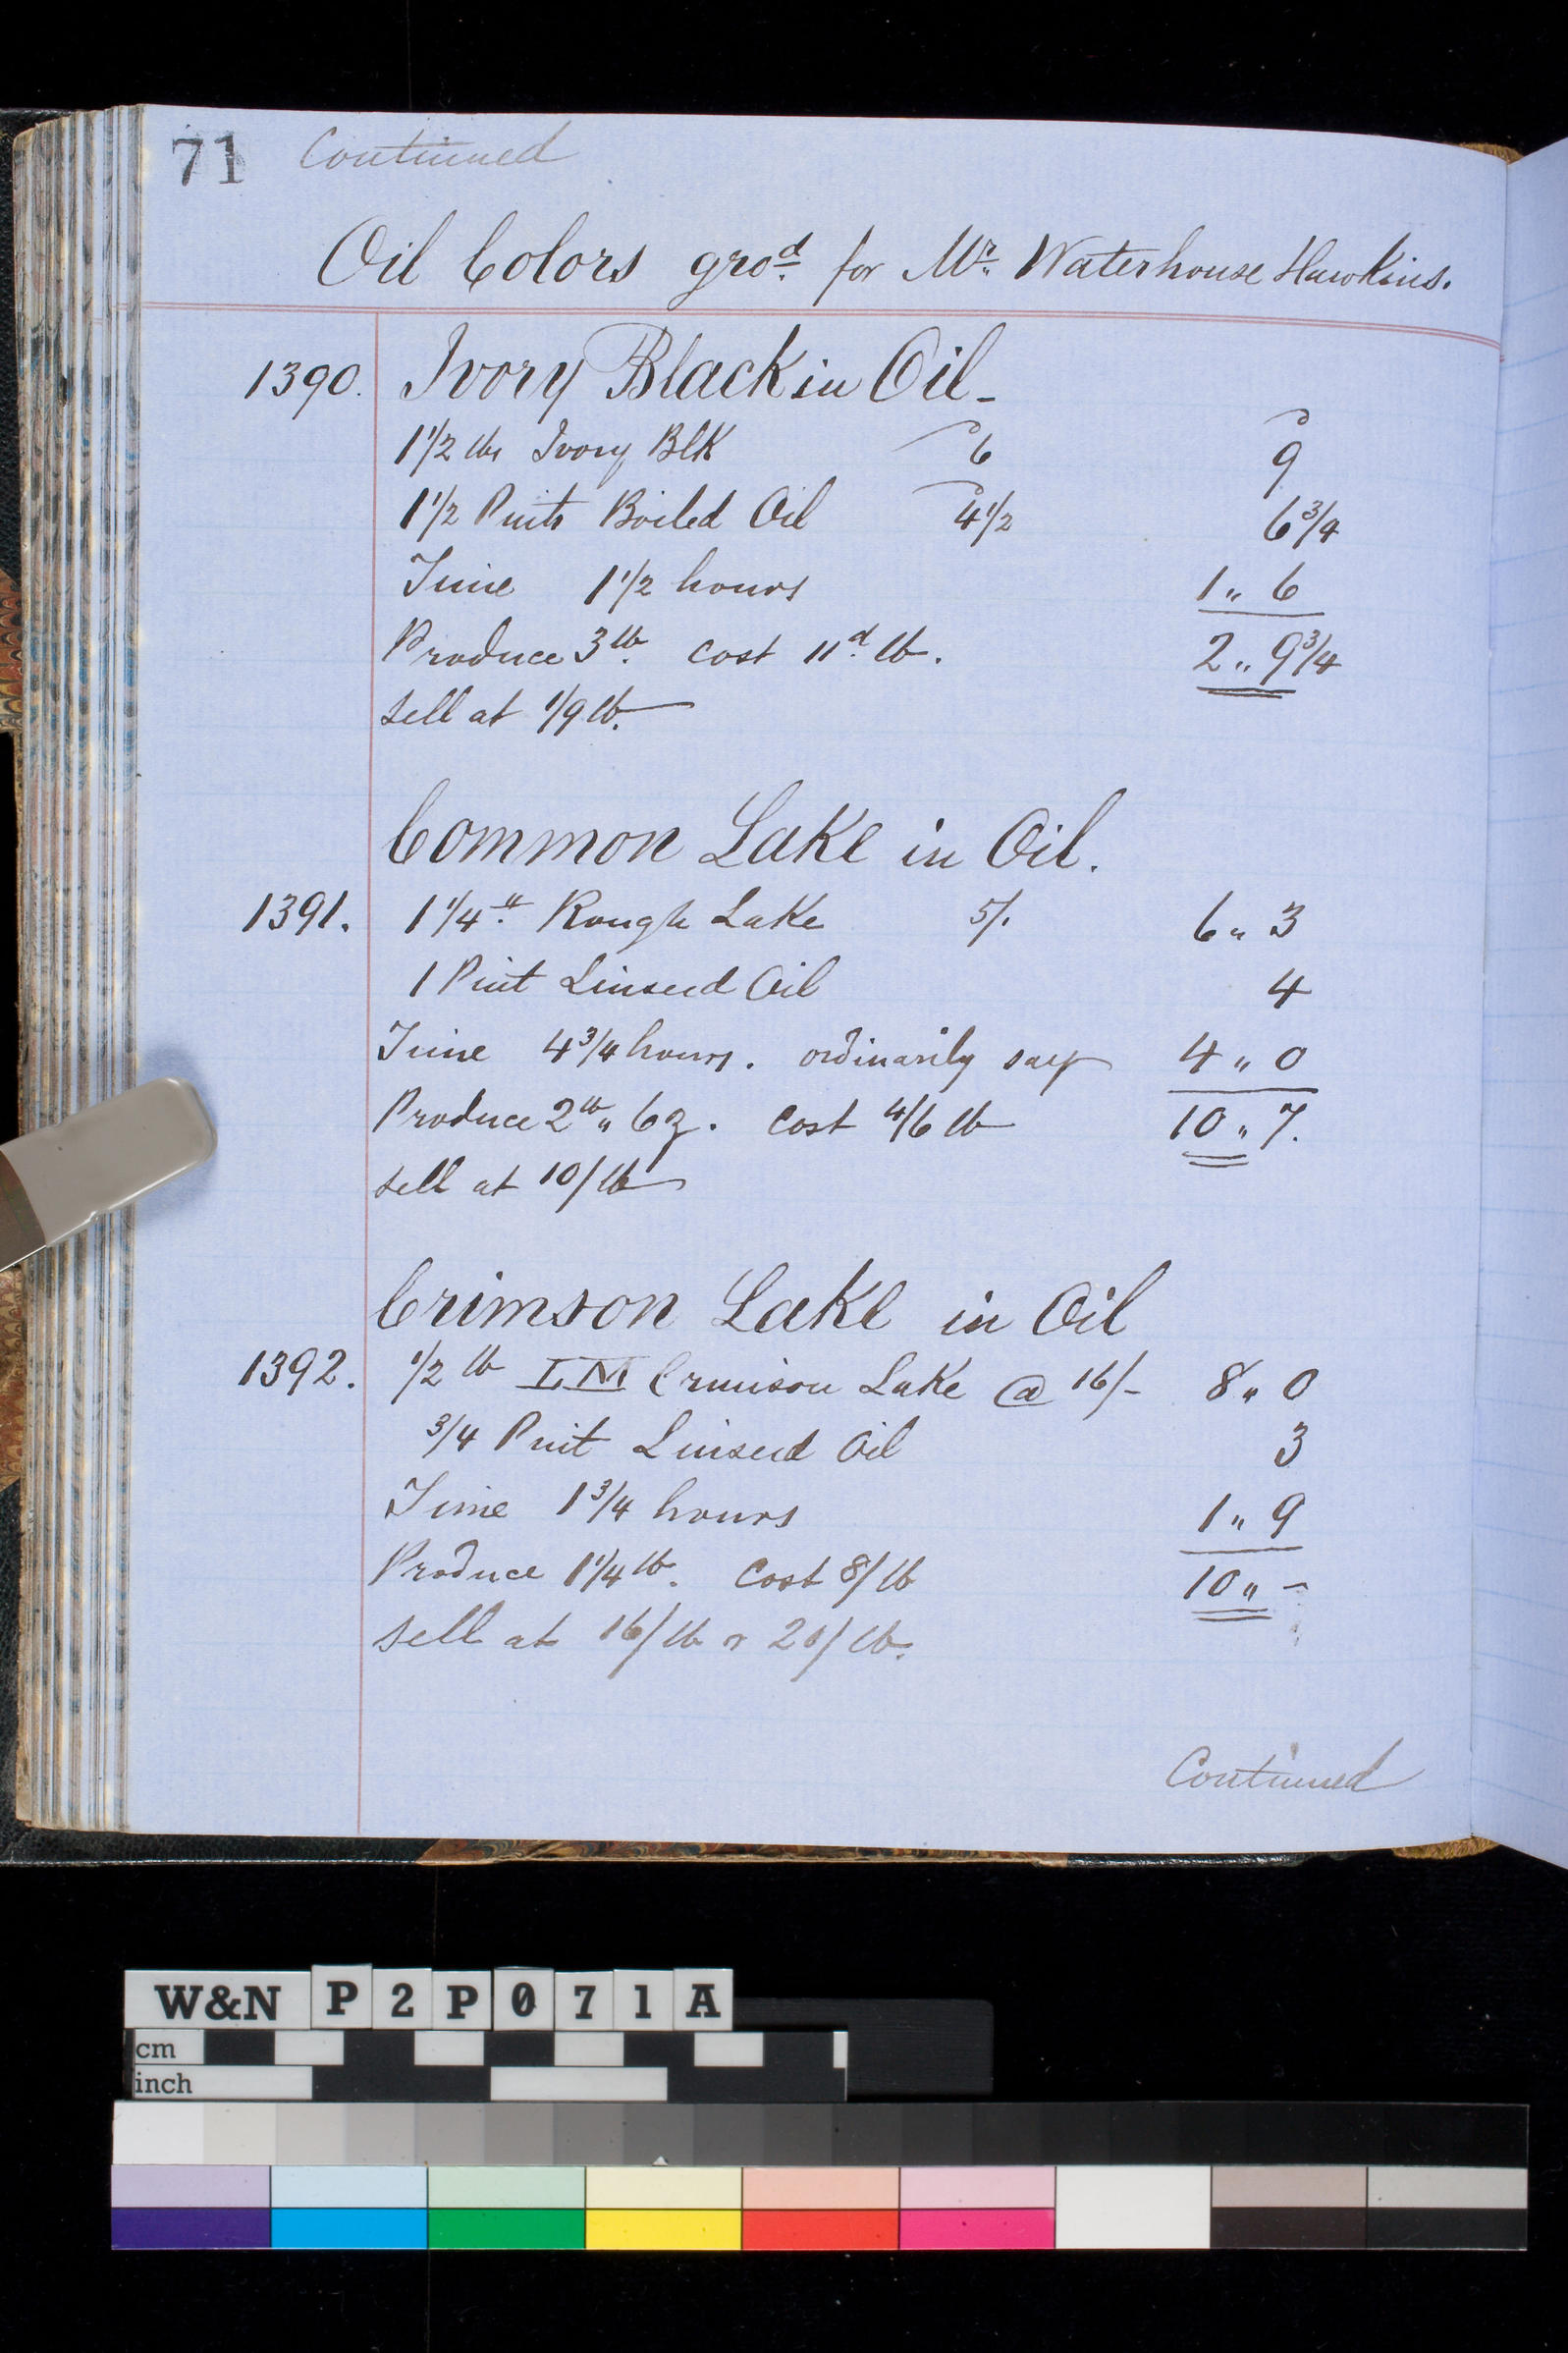 71 Continued
Oil Colors gro^d. for M^r. Waterhouse Hawkins.
1390. Ivory Black in Oil -
1 1/2 lbs Ivory Blk 6 9
1 1/2 Pints Boiled Oil 4 1/2 6 3/4
Time 1 1/2 hours 1 " 6
Produce 3 lb. cost 11^d. lb. 2 " 9 3/4
sell at 1/9 lb.
Common Lake in Oil.
1391. 1 1/4 Rough Lake 5/. 6 " 3
1 Pint Linseed Oil 4
Time 4 3/4 hours. ordinarily say 4 " 0
Produce 2 lb " 6 oz. Cost 4/6 lb 10 " 7.
sell at 10/ lb
Crimson Lake in Oil
1392. 1/2 lb LM Crimison Lake @ 16/- 8 " 0
3/4 Pint Linseed Oil 3
Time 1 3/4 hours 1 " 9
Produce 1 1/4 lb. Cost 8/ lb 10 " -
sell at 16/ lb or 20/ lb.
Continued
W&N P2P071A
cm
inch